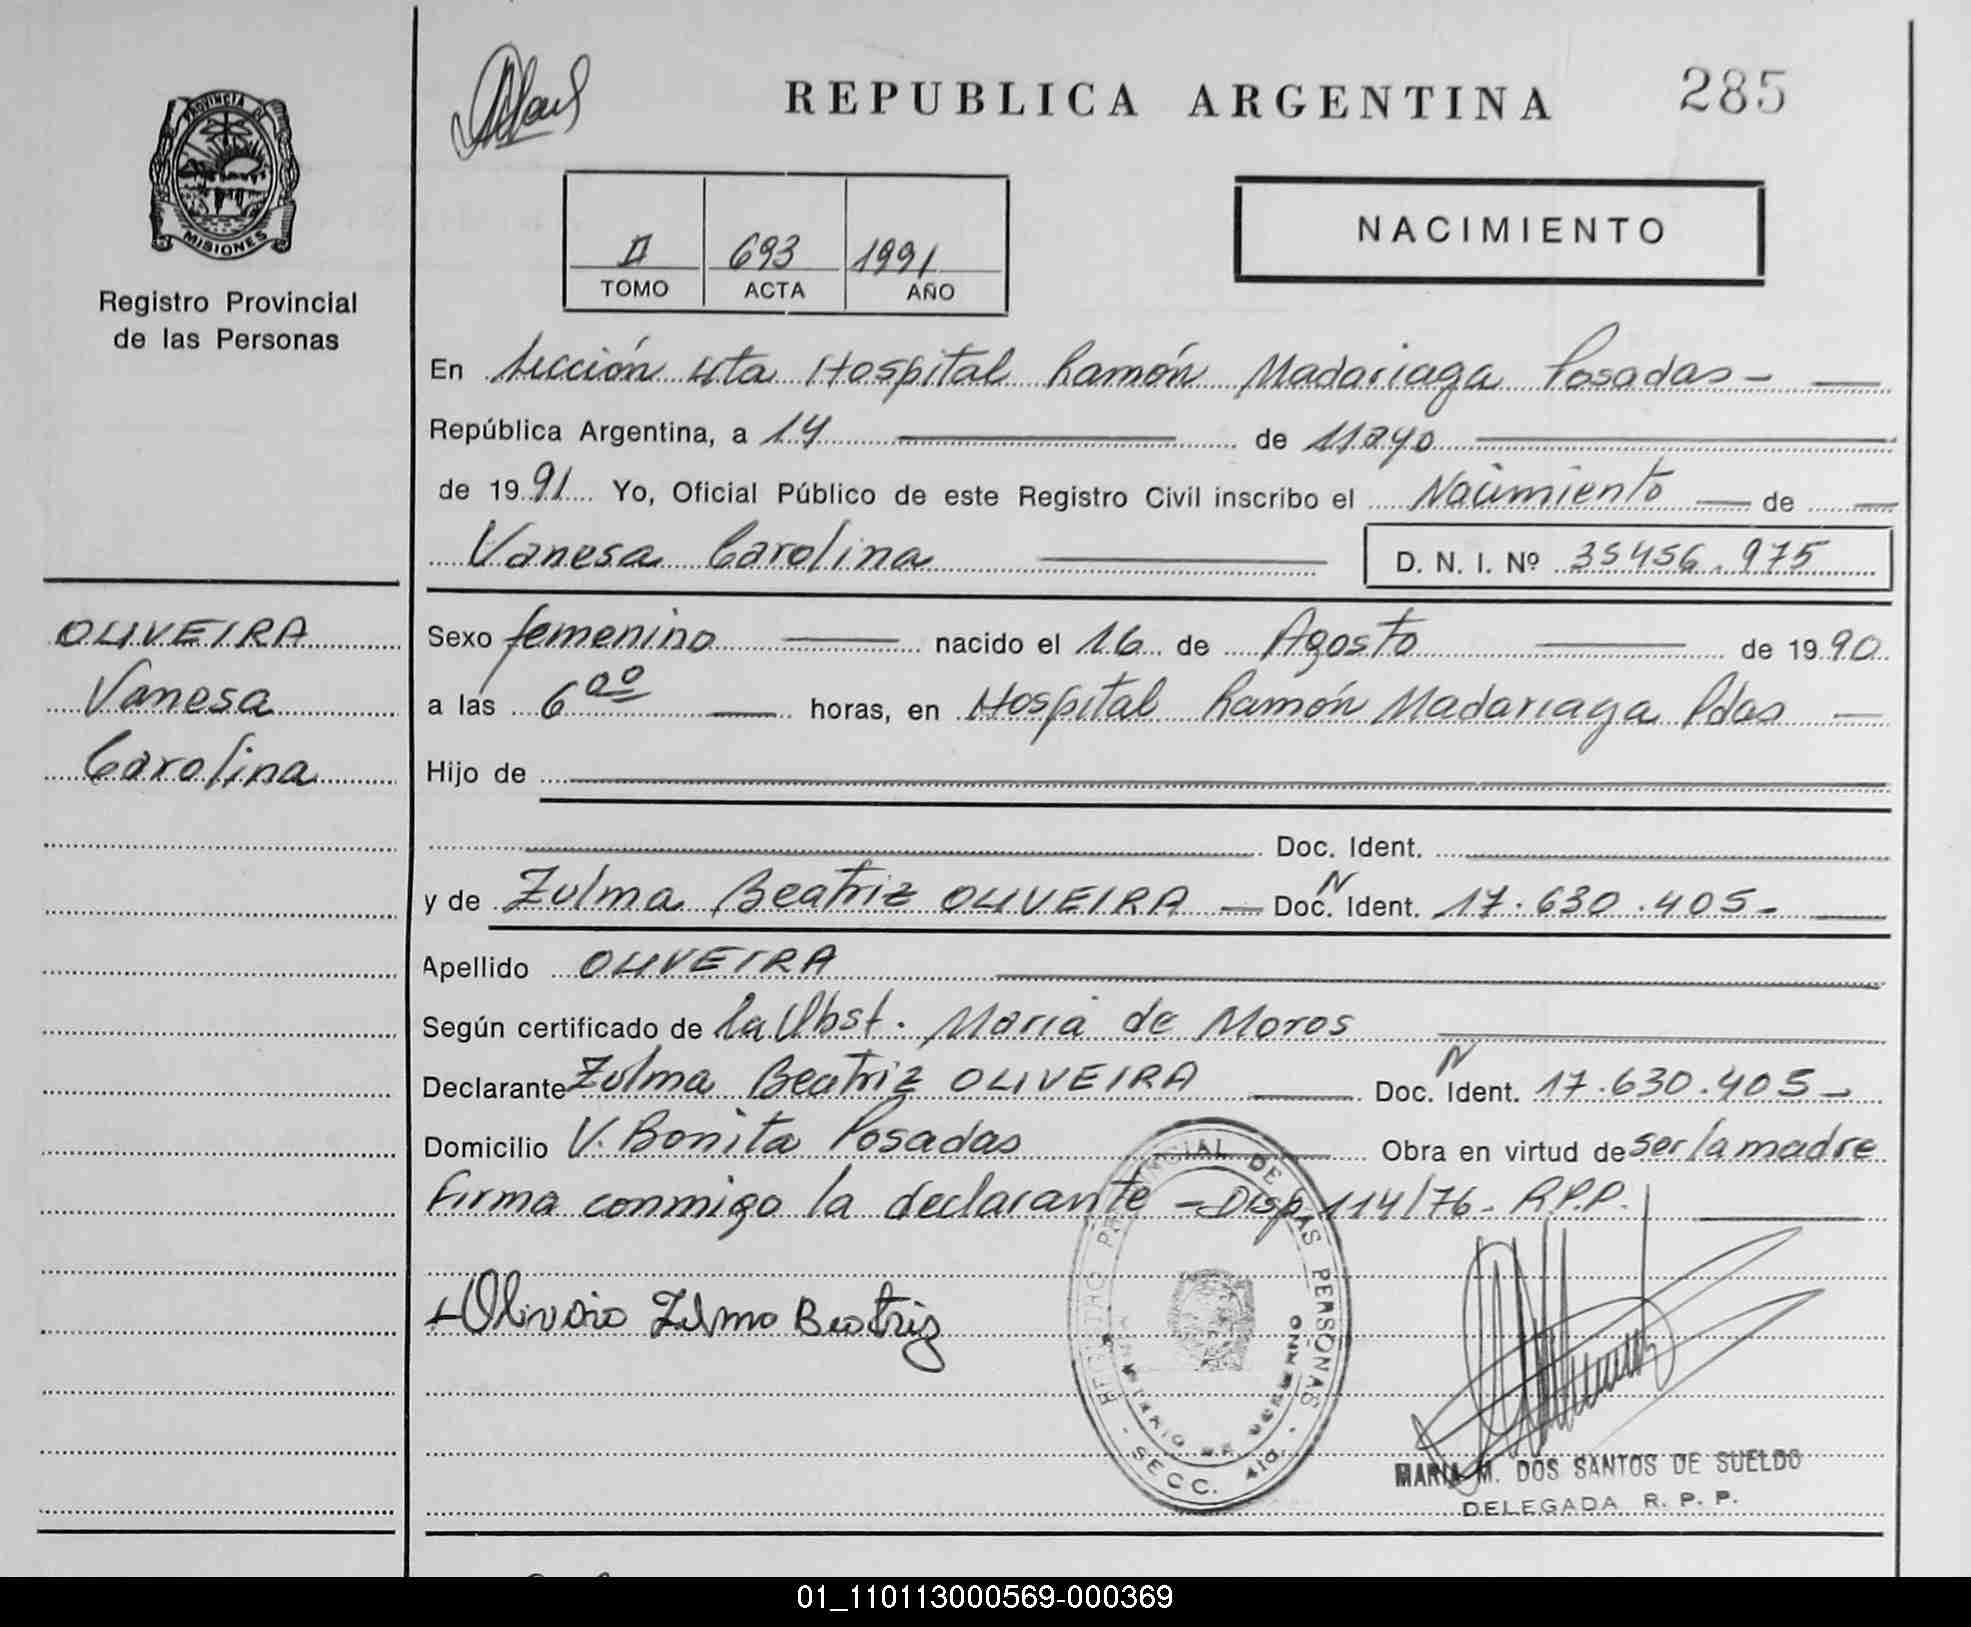 REPUBLICA ARGENTINA
285
PROVINCIA D
MISIONES
Registro Provincial
de las Personas
II 693 1991
TOMO ACTA AÑO
NACIMIENTO
En Sección 4ta Hospital Ramón Madariaga Posadas -
República Argentina, a 14 de Mayo
de 1991 Yo, Oficial Público de este Registro Civil inscribo el Nacimiento de
Vanesa Carolina D. N. I. Nº 35456.975
OLIVEIRA
Vanesa
Carolina
Sexo femenino nacido el 16 de Agosto de 1990
a las 6 00 horas, en Hospital Ramón Madariaga Pdas
Hijo de
Doc. Ident.
y de Zulma Beatriz OLIVEIRA Doc. N Ident. 17.630.405-
Apellido OLIVEIRA
Según certificado de la Obst. Maria de Moros
Declarante Zulma Beatriz OLIVEIRA Doc. N Ident. 17.630.405-
Domicilio V. Bonita Posadas Obra en virtud de ser la madre
Firma conmigo la declarante - Disp 114/76- R.P.P.
Zulma Beatriz
REGISTRO PROVINCIAL DE LAS PERSONAS
MINISTERIO DE GOBIERNO
- SECC. 4ta. -
MARIA M. DOS SANTOS DE SUELDO
DELEGADA R. P. P.
01_110113000569-000369